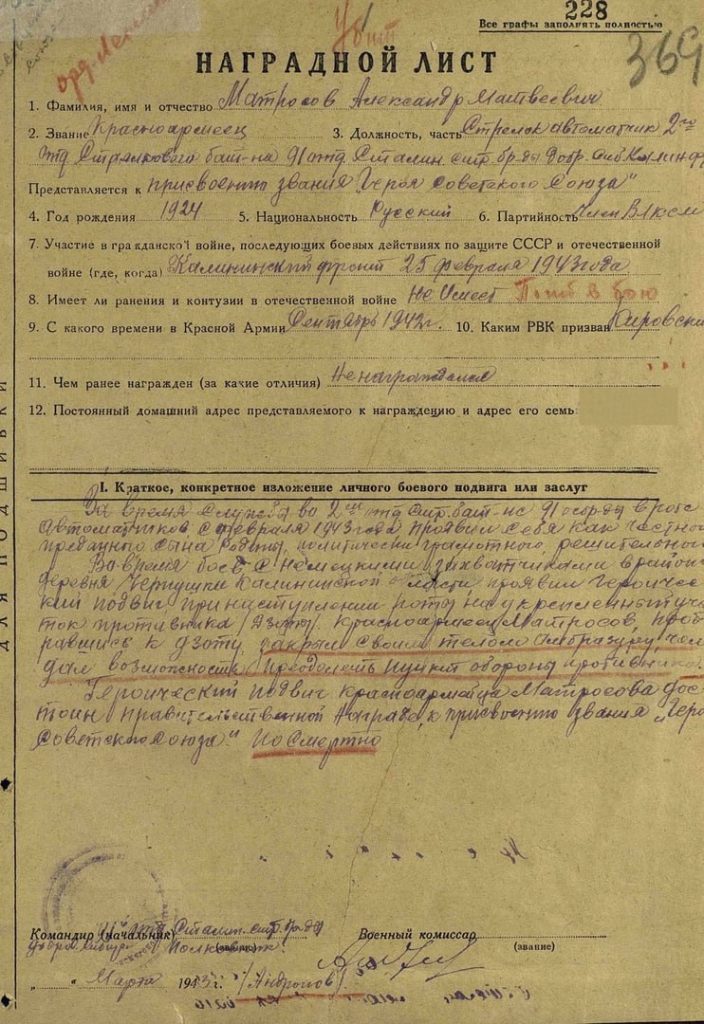 Убит
228
Все графы заполнять полностью
орд. Ленина
369
НАГРАДНОЙ ЛИСТ
1. Фамилия, имя и отчество Матросов Александр Матвеевич
2. Звание Красноармеец 3. Должность, часть Стрелок автоматчик 2го
отд Стрелкового бат-на 91 отд. Сталин. стр. бр-ды добр. сиб Калин.фр
Представляется к присвоению звания Героя Советского Союза"
4. Год рождения 1924 5. Национальность Русский 6. Партийность Член ВЛКСМ
7. Участие в гражданской войне, последующих боевых действиях по защите СССР и отечественной
войне (где, когда) Калининский фронт 25 февраля 1943 года
8. Имеет ли ранения и контузии в отечественной войне Не имеет Погиб в бою
9. С какого времени в Красной Армии Сентябрь 1942 г. 10. Каким РВК призван Кировски
11. Чем ранее награжден (за какие отличия) Не награждался
12. Постоянный домашний адрес представляемого к награждению и адрес его семь
ДЛЯ ПОДШИВКИ
I. Краткое, конкретное изложение личного боевого подвига или заслуг
За время службы во 2 отд стр. бат-не 91 осбр-ды в роте
автоматчиков с февраля 1943 года проявил себя как честной
преданного сына Родины, политически грамотного, решительного
Во время боев с немецкими захватчиками в район
деревня Чернушки Калининской области проявил героичес
кий подвиг при наступлении роты на укрепленный уча
ток противника (Дзоты). Красноармеец Матросов, проб
равшись к дзоту, закрыл своим телом амбразуру, чем
дал возможность преодолеть пункт обороны противника.
Героический подвиг красноармейца Матросова дос
тоин правительственной награде, к присвоению звания „Геро
Советского Союза." Посмертно
Командир (начальник) 91 отд Сталин. стр. бр-ды Военный комиссар
Полковник (звание)
„ " Марта 1943 г. /Андронов/